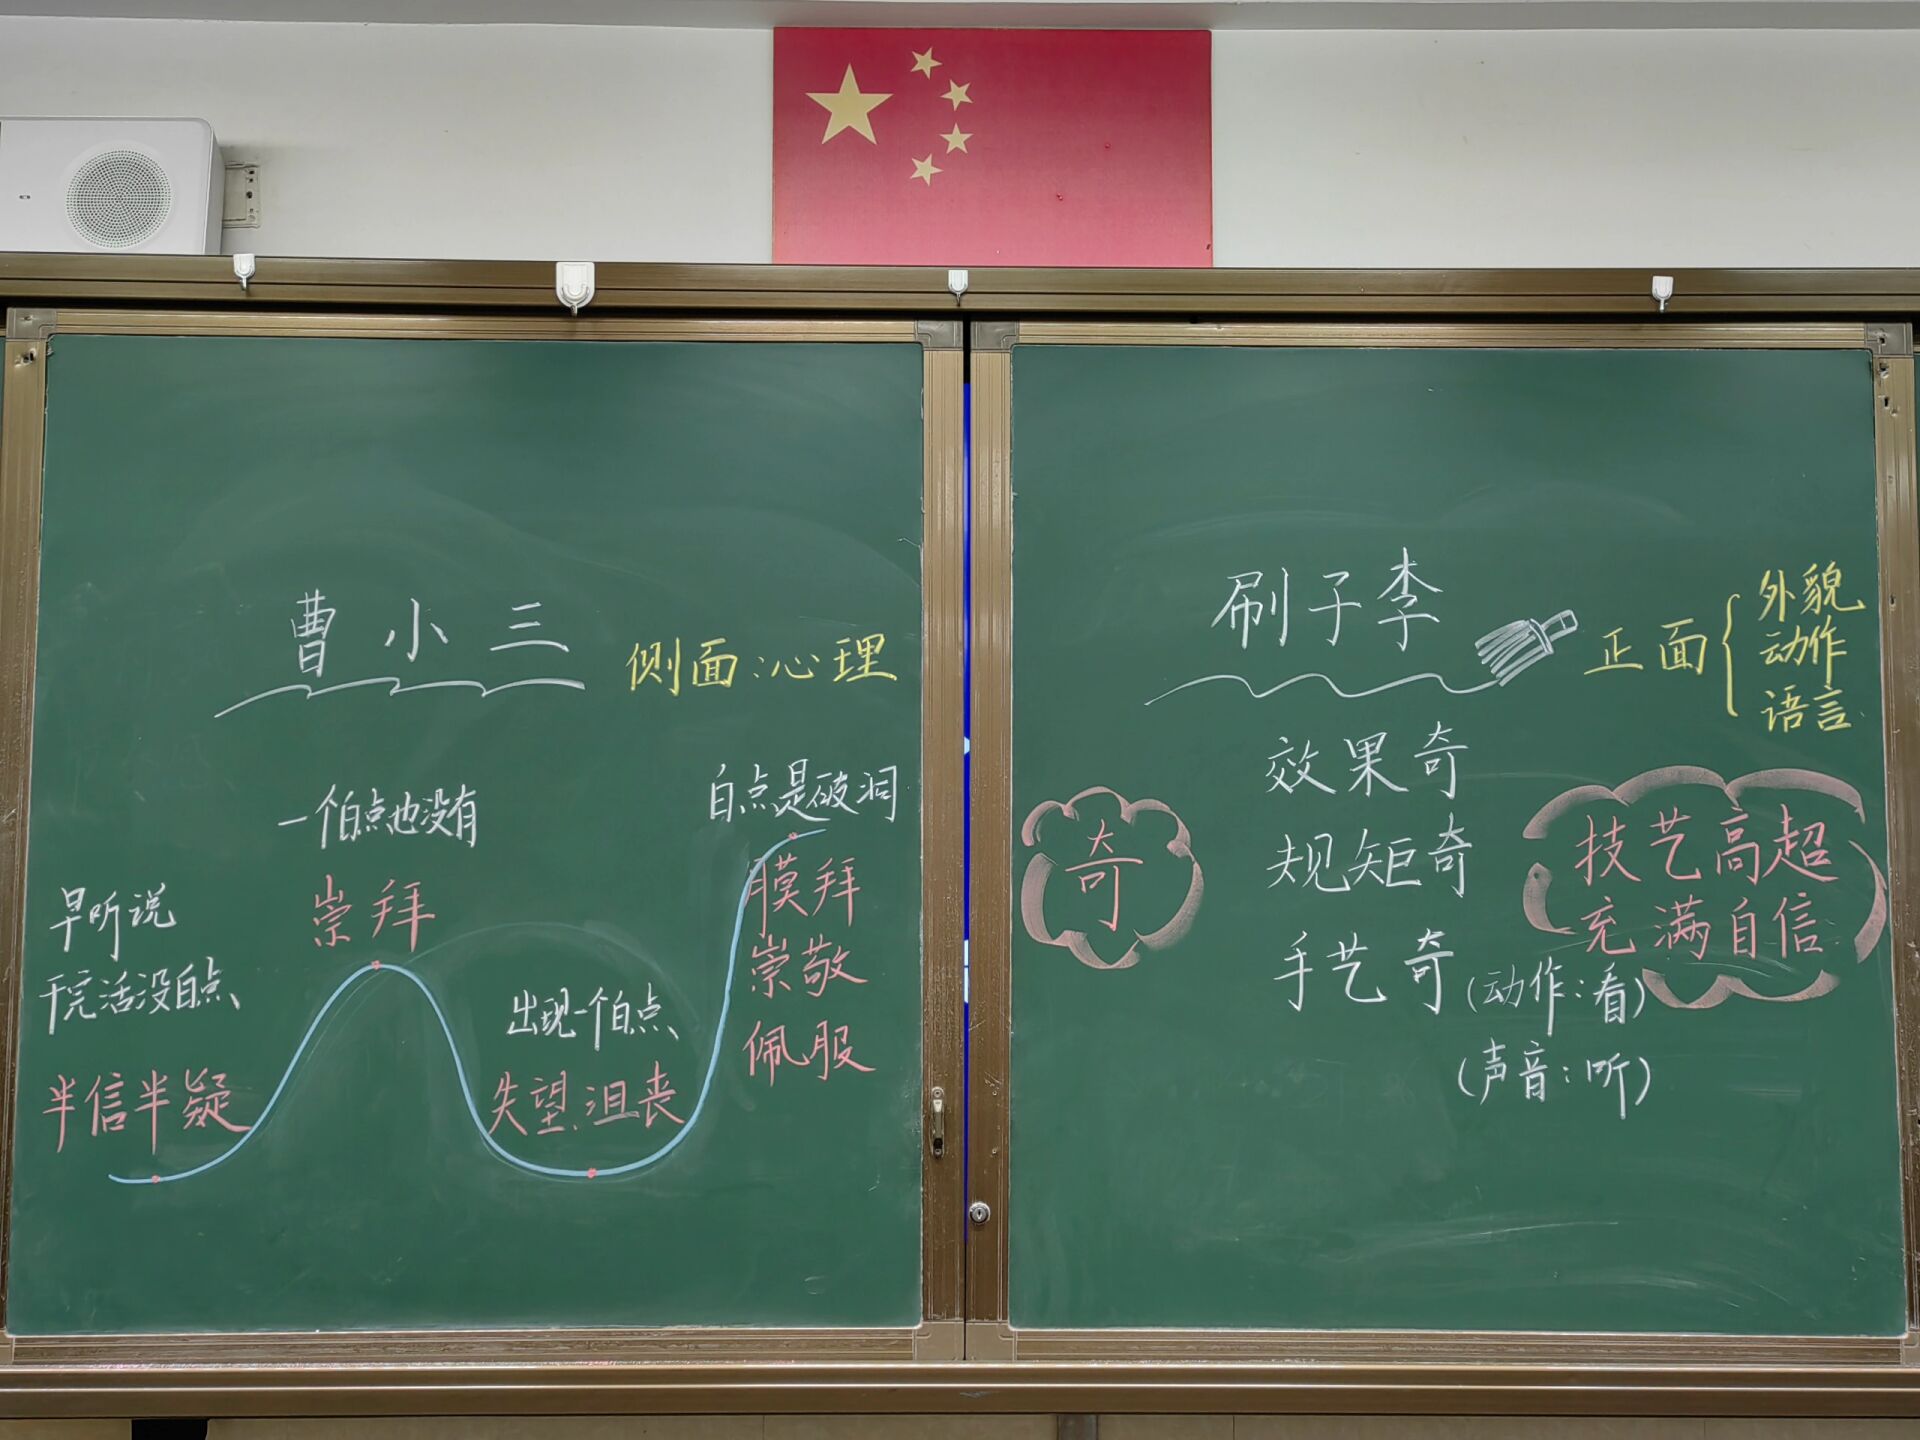 曹小三
侧面:心理
早听说
干完活没白点
半信半疑
一个白点也没有
崇拜
出现一个白点
失望、沮丧
白点是破洞
膜拜
崇敬
佩服
刷子李
正面
外貌
动作
语言
奇
效果奇
规矩奇
手艺奇
(动作:看)
(声音:听)
技艺高超
充满自信